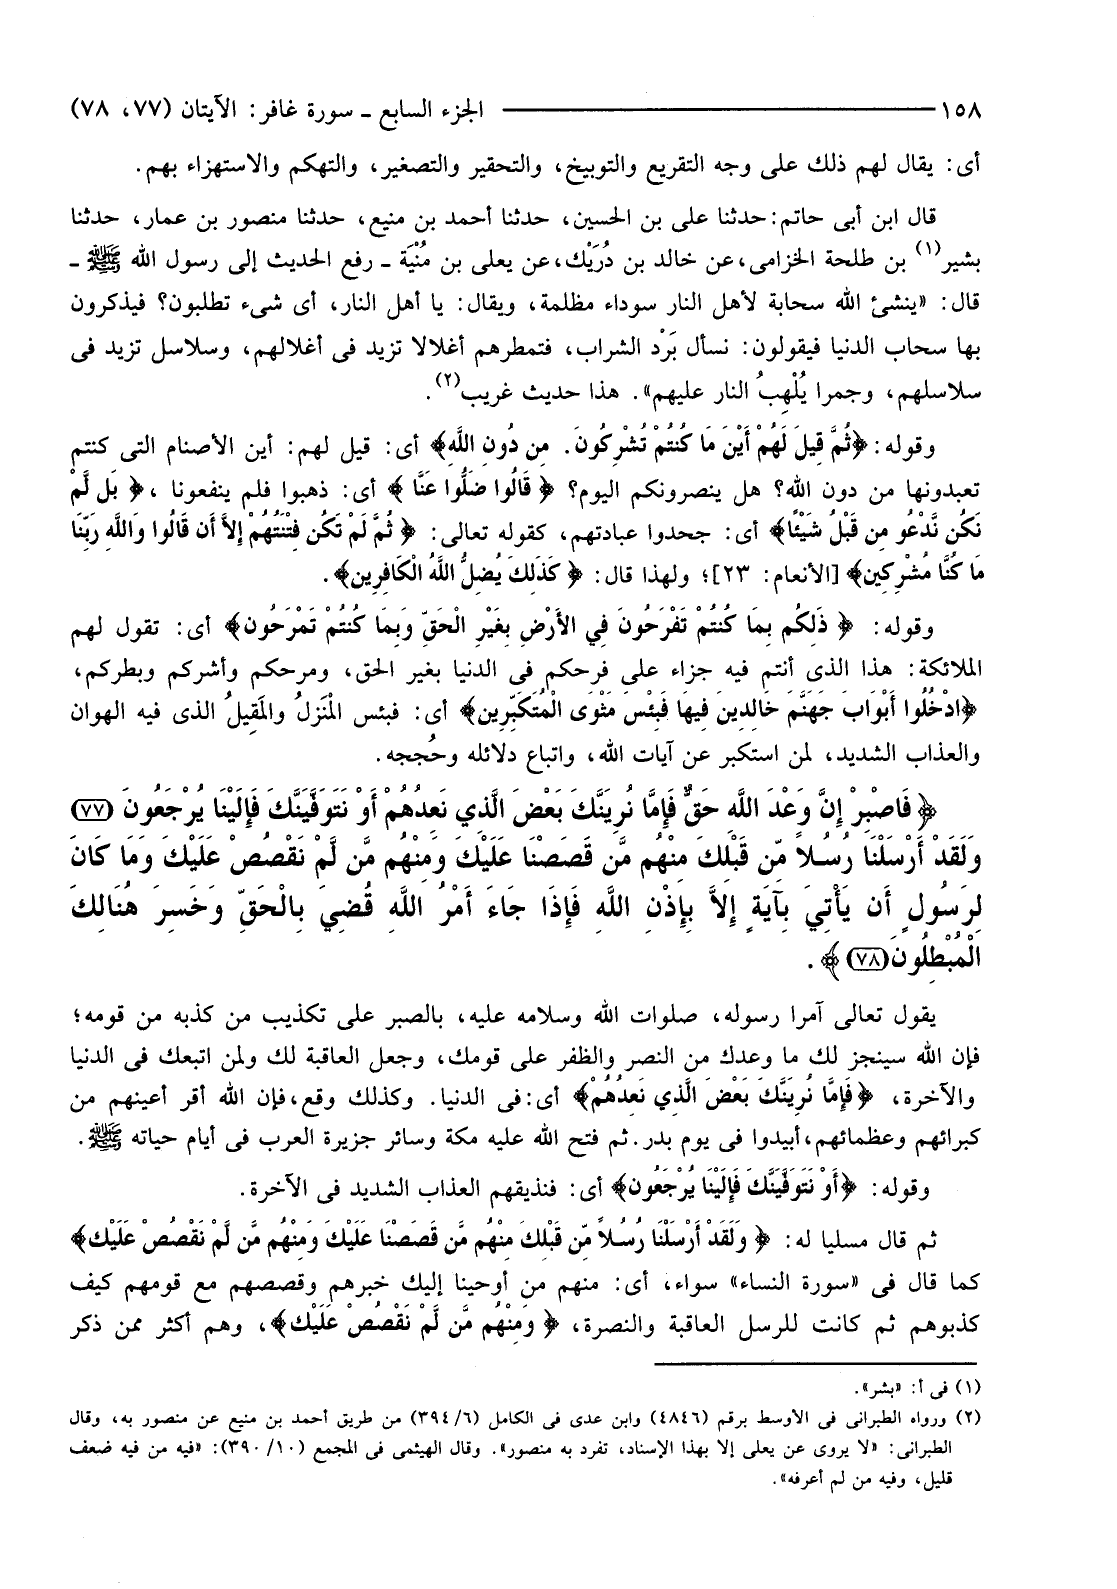 ١٥٨ ــــــــــ الجزء السابع ـ سورة غافر: الآيتان (٧٧، ٧٨)
أى: يقال لهم ذلك على وجه التقريع والتوبيخ، والتحقير والتصغير، والتهكم والاستهزاء بهم.
قال ابن أبى حاتم: حدثنا على بن الحسين، حدثنا أحمد بن منيع، حدثنا منصور بن عمار، حدثنا
بشير(١) بن طلحة الخزامى، عن خالد بن دُرَيْك، عن يعلى بن مُنْيَة ـ رفع الحديث إلى رسول الله ﷺ ـ
قال: «ينشئ الله سحابة لأهل النار سوداء مظلمة، ويقال: يا أهل النار، أى شىء تطلبون؟ فيذكرون
بها سحاب الدنيا فيقولون: نسأل بَرْد الشراب، فتمطرهم أغلالا تزيد فى أغلالهم، وسلاسل تزيد فى
سلاسلهم، وجمرا يُلْهِبُ النار عليهم». هذا حديث غريب(٢).
وقوله: ﴿ثُمَّ قِيلَ لَهُمْ أَيْنَ مَا كُنتُمْ تُشْرِكُونَ. مِن دُونِ اللَّهِ﴾ أى: قيل لهم: أين الأصنام التى كنتم
تعبدونها من دون الله؟ هل ينصرونكم اليوم؟ ﴿قَالُوا ضَلُّوا عَنَّا﴾ أى: ذهبوا فلم ينفعونا ، ﴿بَل لَّمْ
نَكُن نَّدْعُو مِن قَبْلُ شَيْئًا﴾ أى: جحدوا عبادتهم، كقوله تعالى: ﴿ثُمَّ لَمْ تَكُن فِتْنَتُهُمْ إِلاَّ أَن قَالُوا وَاللَّهِ رَبِّنَا
مَا كُنَّا مُشْرِكِين﴾ [الأنعام: ٢٣]؛ ولهذا قال: ﴿كَذَلِكَ يُضِلُّ اللَّهُ الْكَافِرِين﴾.
وقوله: ﴿ذَلِكُم بِمَا كُنتُمْ تَفْرَحُونَ فِي الأَرْضِ بِغَيْرِ الْحَقِّ وَبِمَا كُنتُمْ تَمْرَحُون﴾ أى: تقول لهم
الملائكة: هذا الذى أنتم فيه جزاء على فرحكم فى الدنيا بغير الحق، ومرحكم وأشركم وبطركم،
﴿ادْخُلُوا أَبْوَابَ جَهَنَّمَ خَالِدِينَ فِيهَا فَبِئْسَ مَثْوَى الْمُتَكَبِّرِين﴾ أى: فبئس المْنَزلُ والمَقِيلُ الذى فيه الهوان
والعذاب الشديد، لمن استكبر عن آيات الله، واتباع دلائله وحُججه.
﴿فَاصْبِرْ إِنَّ وَعْدَ اللَّهِ حَقٌّ فَإِمَّا نُرِيَنَّكَ بَعْضَ الَّذِي نَعِدُهُمْ أَوْ نَتَوَفَّيَنَّكَ فَإِلَيْنَا يُرْجَعُونَ (٧٧)
وَلَقَدْ أَرْسَلْنَا رُسُلاً مِّن قَبْلِكَ مِنْهُم مَّن قَصَصْنَا عَلَيْكَ وَمِنْهُم مَّن لَّمْ نَقْصُصْ عَلَيْكَ وَمَا كَانَ
لِرَسُولٍ أَن يَأْتِيَ بِآيَةٍ إِلاَّ بِإِذْنِ اللَّهِ فَإِذَا جَاءَ أَمْرُ اللَّهِ قُضِيَ بِالْحَقِّ وَخَسِرَ هُنَالِكَ
الْمُبْطِلُونَ (٧٨)﴾ .
يقول تعالى آمرا رسوله، صلوات الله وسلامه عليه، بالصبر على تكذيب من كذبه من قومه؛
فإن الله سينجز لك ما وعدك من النصر والظفر على قومك، وجعل العاقبة لك ولمن اتبعك فى الدنيا
والآخرة، ﴿فَإِمَّا نُرِيَنَّكَ بَعْضَ الَّذِي نَعِدُهُمْ﴾ أى: فى الدنيا. وكذلك وقع، فإن الله أقر أعينهم من
كبرائهم وعظمائهم، أبيدوا فى يوم بدر. ثم فتح الله عليه مكة وسائر جزيرة العرب فى أيام حياته ﷺ.
وقوله: ﴿أَوْ نَتَوَفَّيَنَّكَ فَإِلَيْنَا يُرْجَعُون﴾ أى: فنذيقهم العذاب الشديد فى الآخرة.
ثم قال مسليا له: ﴿وَلَقَدْ أَرْسَلْنَا رُسُلاً مِّن قَبْلِكَ مِنْهُم مَّن قَصَصْنَا عَلَيْكَ وَمِنْهُم مَّن لَّمْ نَقْصُصْ عَلَيْك﴾
كما قال فى «سورة النساء» سواء، أى: منهم من أوحينا إليك خبرهم وقصصهم مع قومهم كيف
كذبوهم ثم كانت للرسل العاقبة والنصرة، ﴿وَمِنْهُم مَّن لَّمْ نَقْصُصْ عَلَيْك﴾، وهم أكثر ممن ذكر
(١) فى أ: «بشر».
(٢) ورواه الطبرانى فى الأوسط برقم (٤٨٤٦) وابن عدى فى الكامل (٦/ ٣٩٤) من طريق أحمد بن منيع عن منصور به، وقال
الطبرانى: «لا يروى عن يعلى إلا بهذا الإسناد، تفرد به منصور». وقال الهيثمى فى المجمع (١٠/ ٣٩٠): «فيه من فيه ضعف
قليل، وفيه من لم أعرفه».